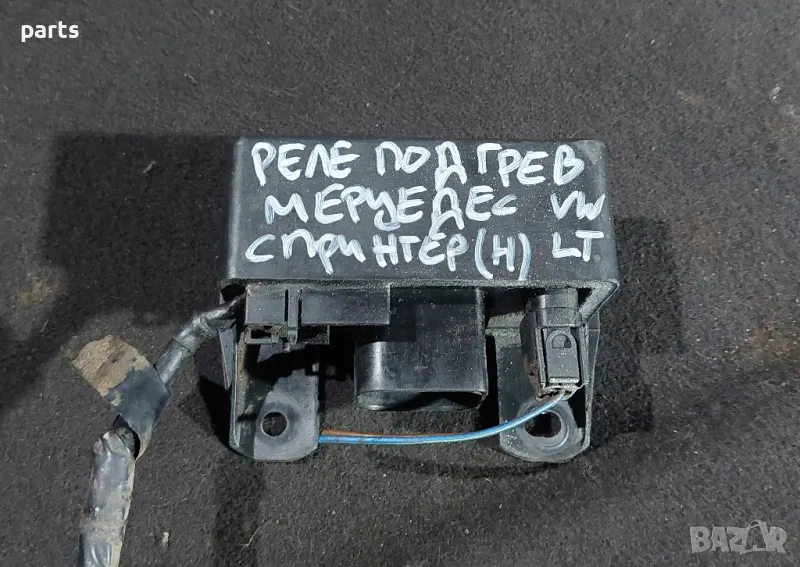 parts
РЕЛЕ ПОДГРЕВ
МЕРЦЕДЕС VW
СПРИНТЕР (Н) LT
BAZAR